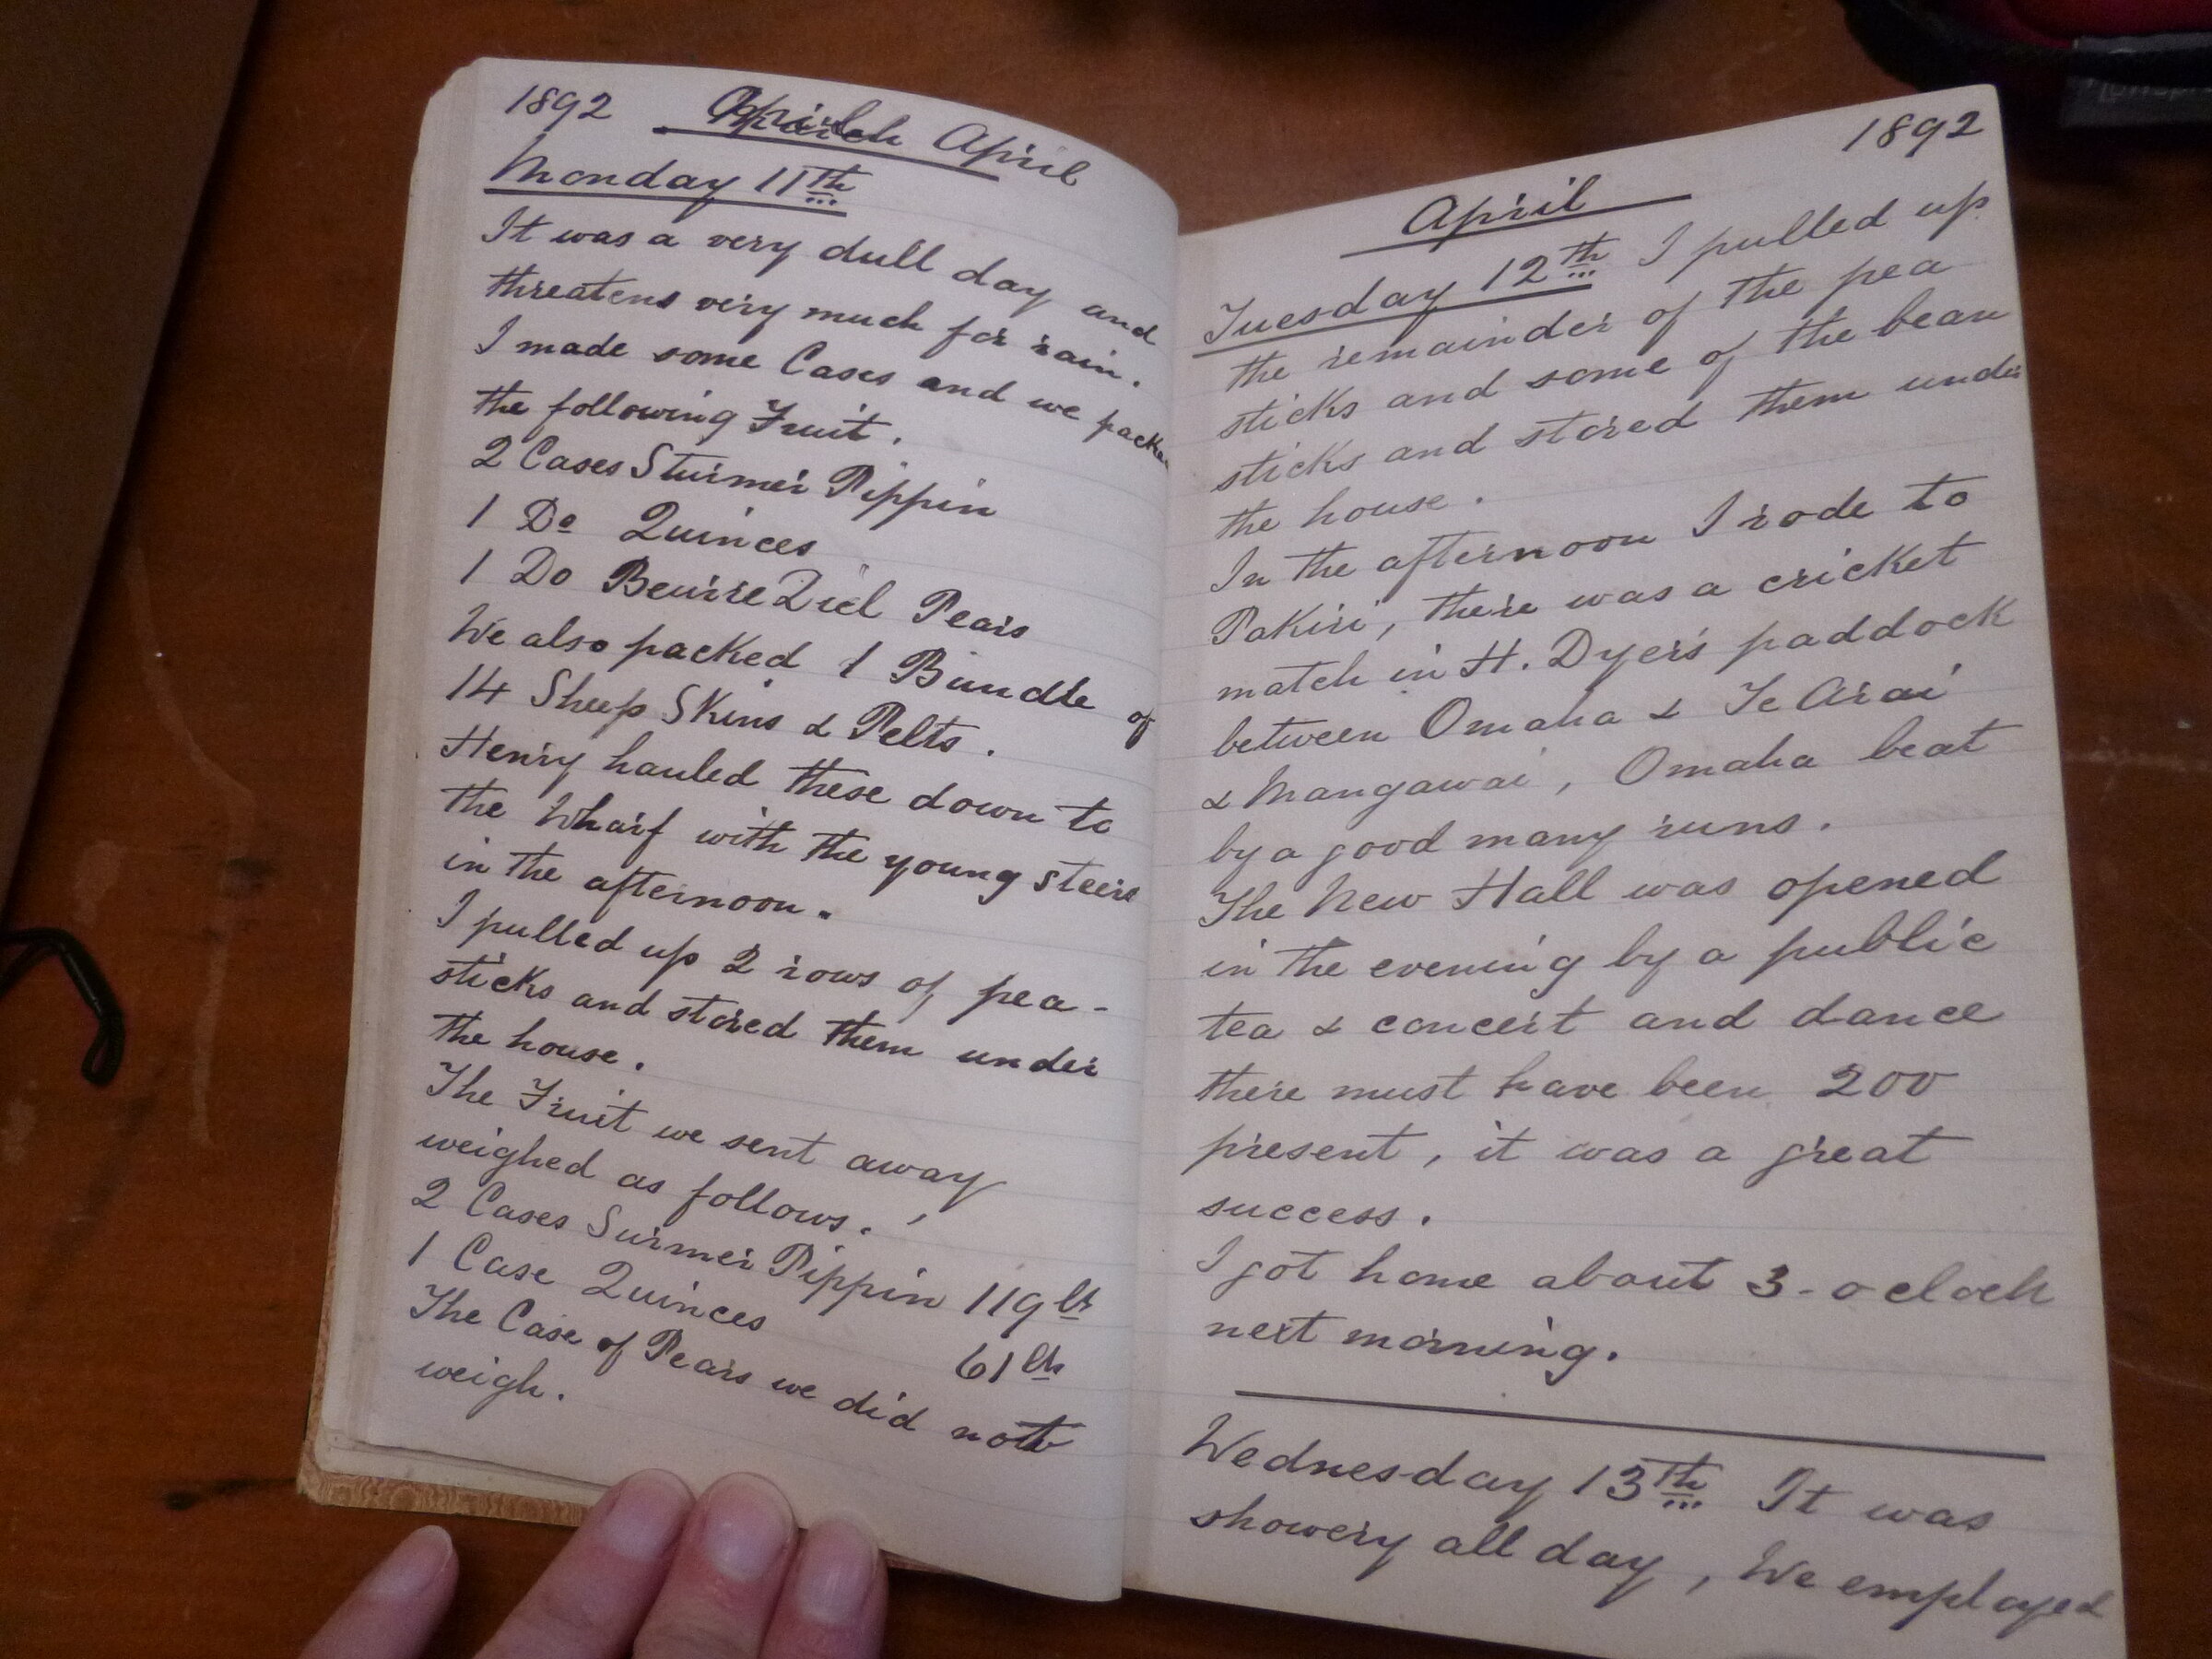 1892 April April
Monday 11th
It was a very dull day and
threatens very much for rain.
I made some Cases and we packed
the following Fruit.
2 Cases Sturmer Pippin
1 Do Quinces
1 Do Beurre Diel Pears
We also packed 1 Bundle of
14 Sheep Skins & Pelts.
Henry hauled these down to
the Wharf with the young steers
in the afternoon.
I pulled up 2 rows of pea-
sticks and stored them under
the house.
The Fruit we sent away
weighed as follows.
2 Cases Surmer Pippin 119 lbs
1 Case Quinces 61 lbs
The Case of Pears we did not
weigh.
1892
April
Tuesday 12th I pulled up
the remainder of the pea
sticks and some of the bean
sticks and stored them under
the house.
In the afternoon I rode to
Pakiri, there was a cricket
match in H. Dyer's paddock
between Omaha & Te Arai
& Mangawai, Omaha beat
by a good many runs.
The New Hall was opened
in the evening by a public
tea & concert and dance
there must have been 200
present, it was a great
success.
I got home about 3-oclock
next morning.
Wednesday 13th It was
showery all day, We employed